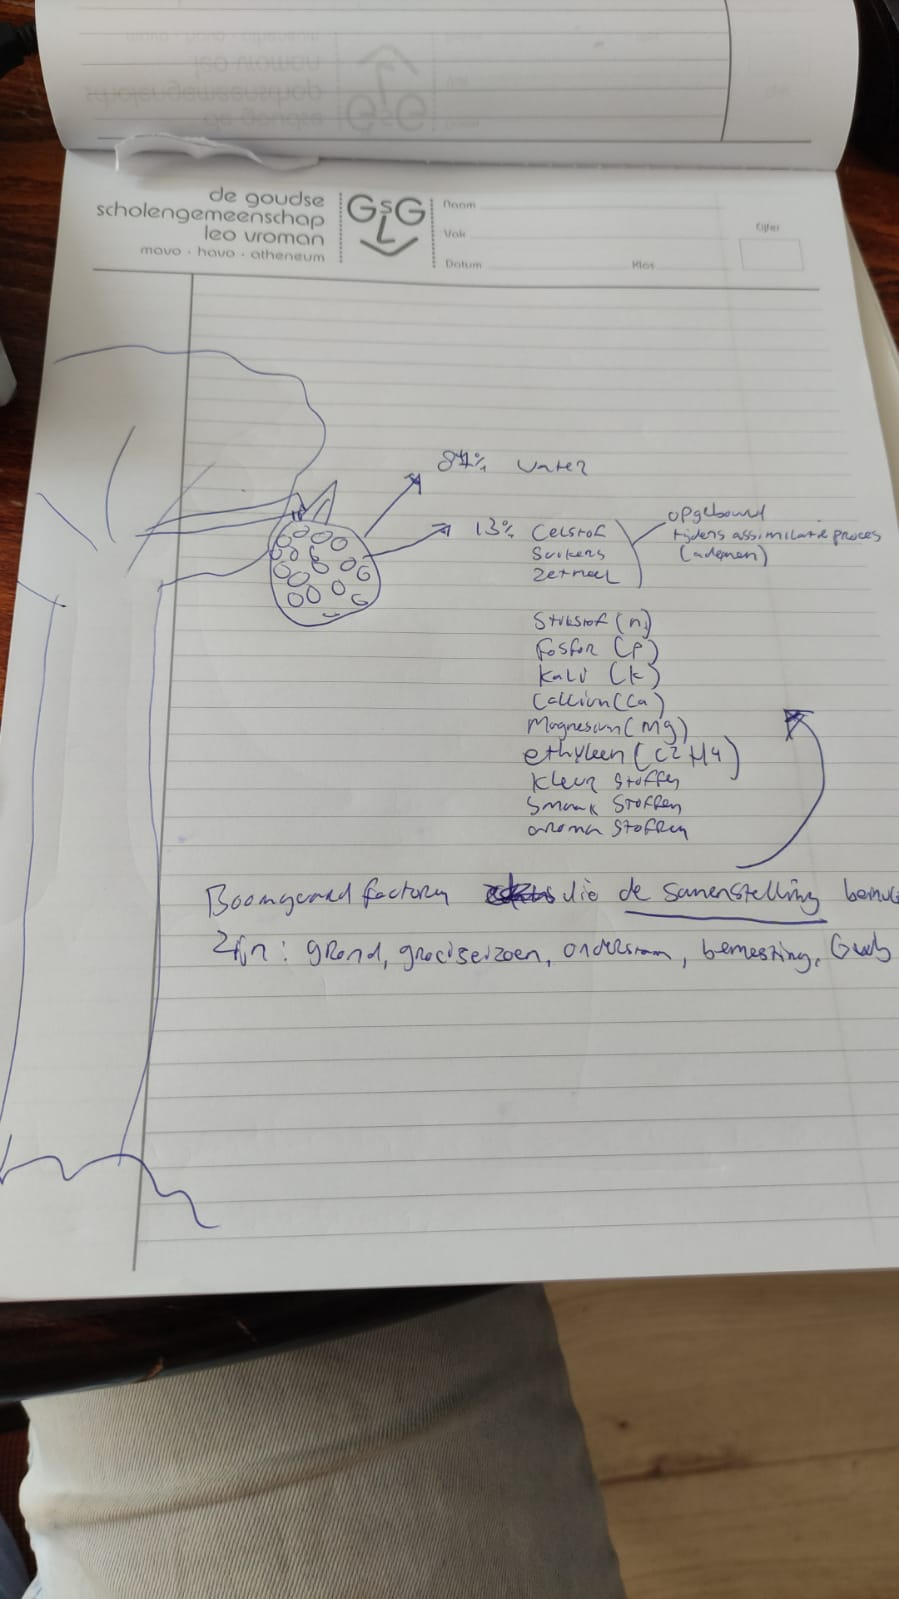 de goudse
scholengemeenschap
leo vroman
mavo · havo · atheneum
GSG
L
Naam
Vak
Datum
Klas
Cijfer
% water
13% Celstof
Suikers
Zetmeel
opgebouwd
tijdens assimilatie proces
(ademen)
Stikstof (n)
Fosfor (P)
Kali (K)
Calcium (Ca)
Magnesium (Mg)
ethyleen (C2H4)
Kleur stoffen
Smaak stoffen
aroma stoffen
Boomgaard factoren die de samenstelling
zijn: grond, groeiseizoen, onderstam, bemesting,